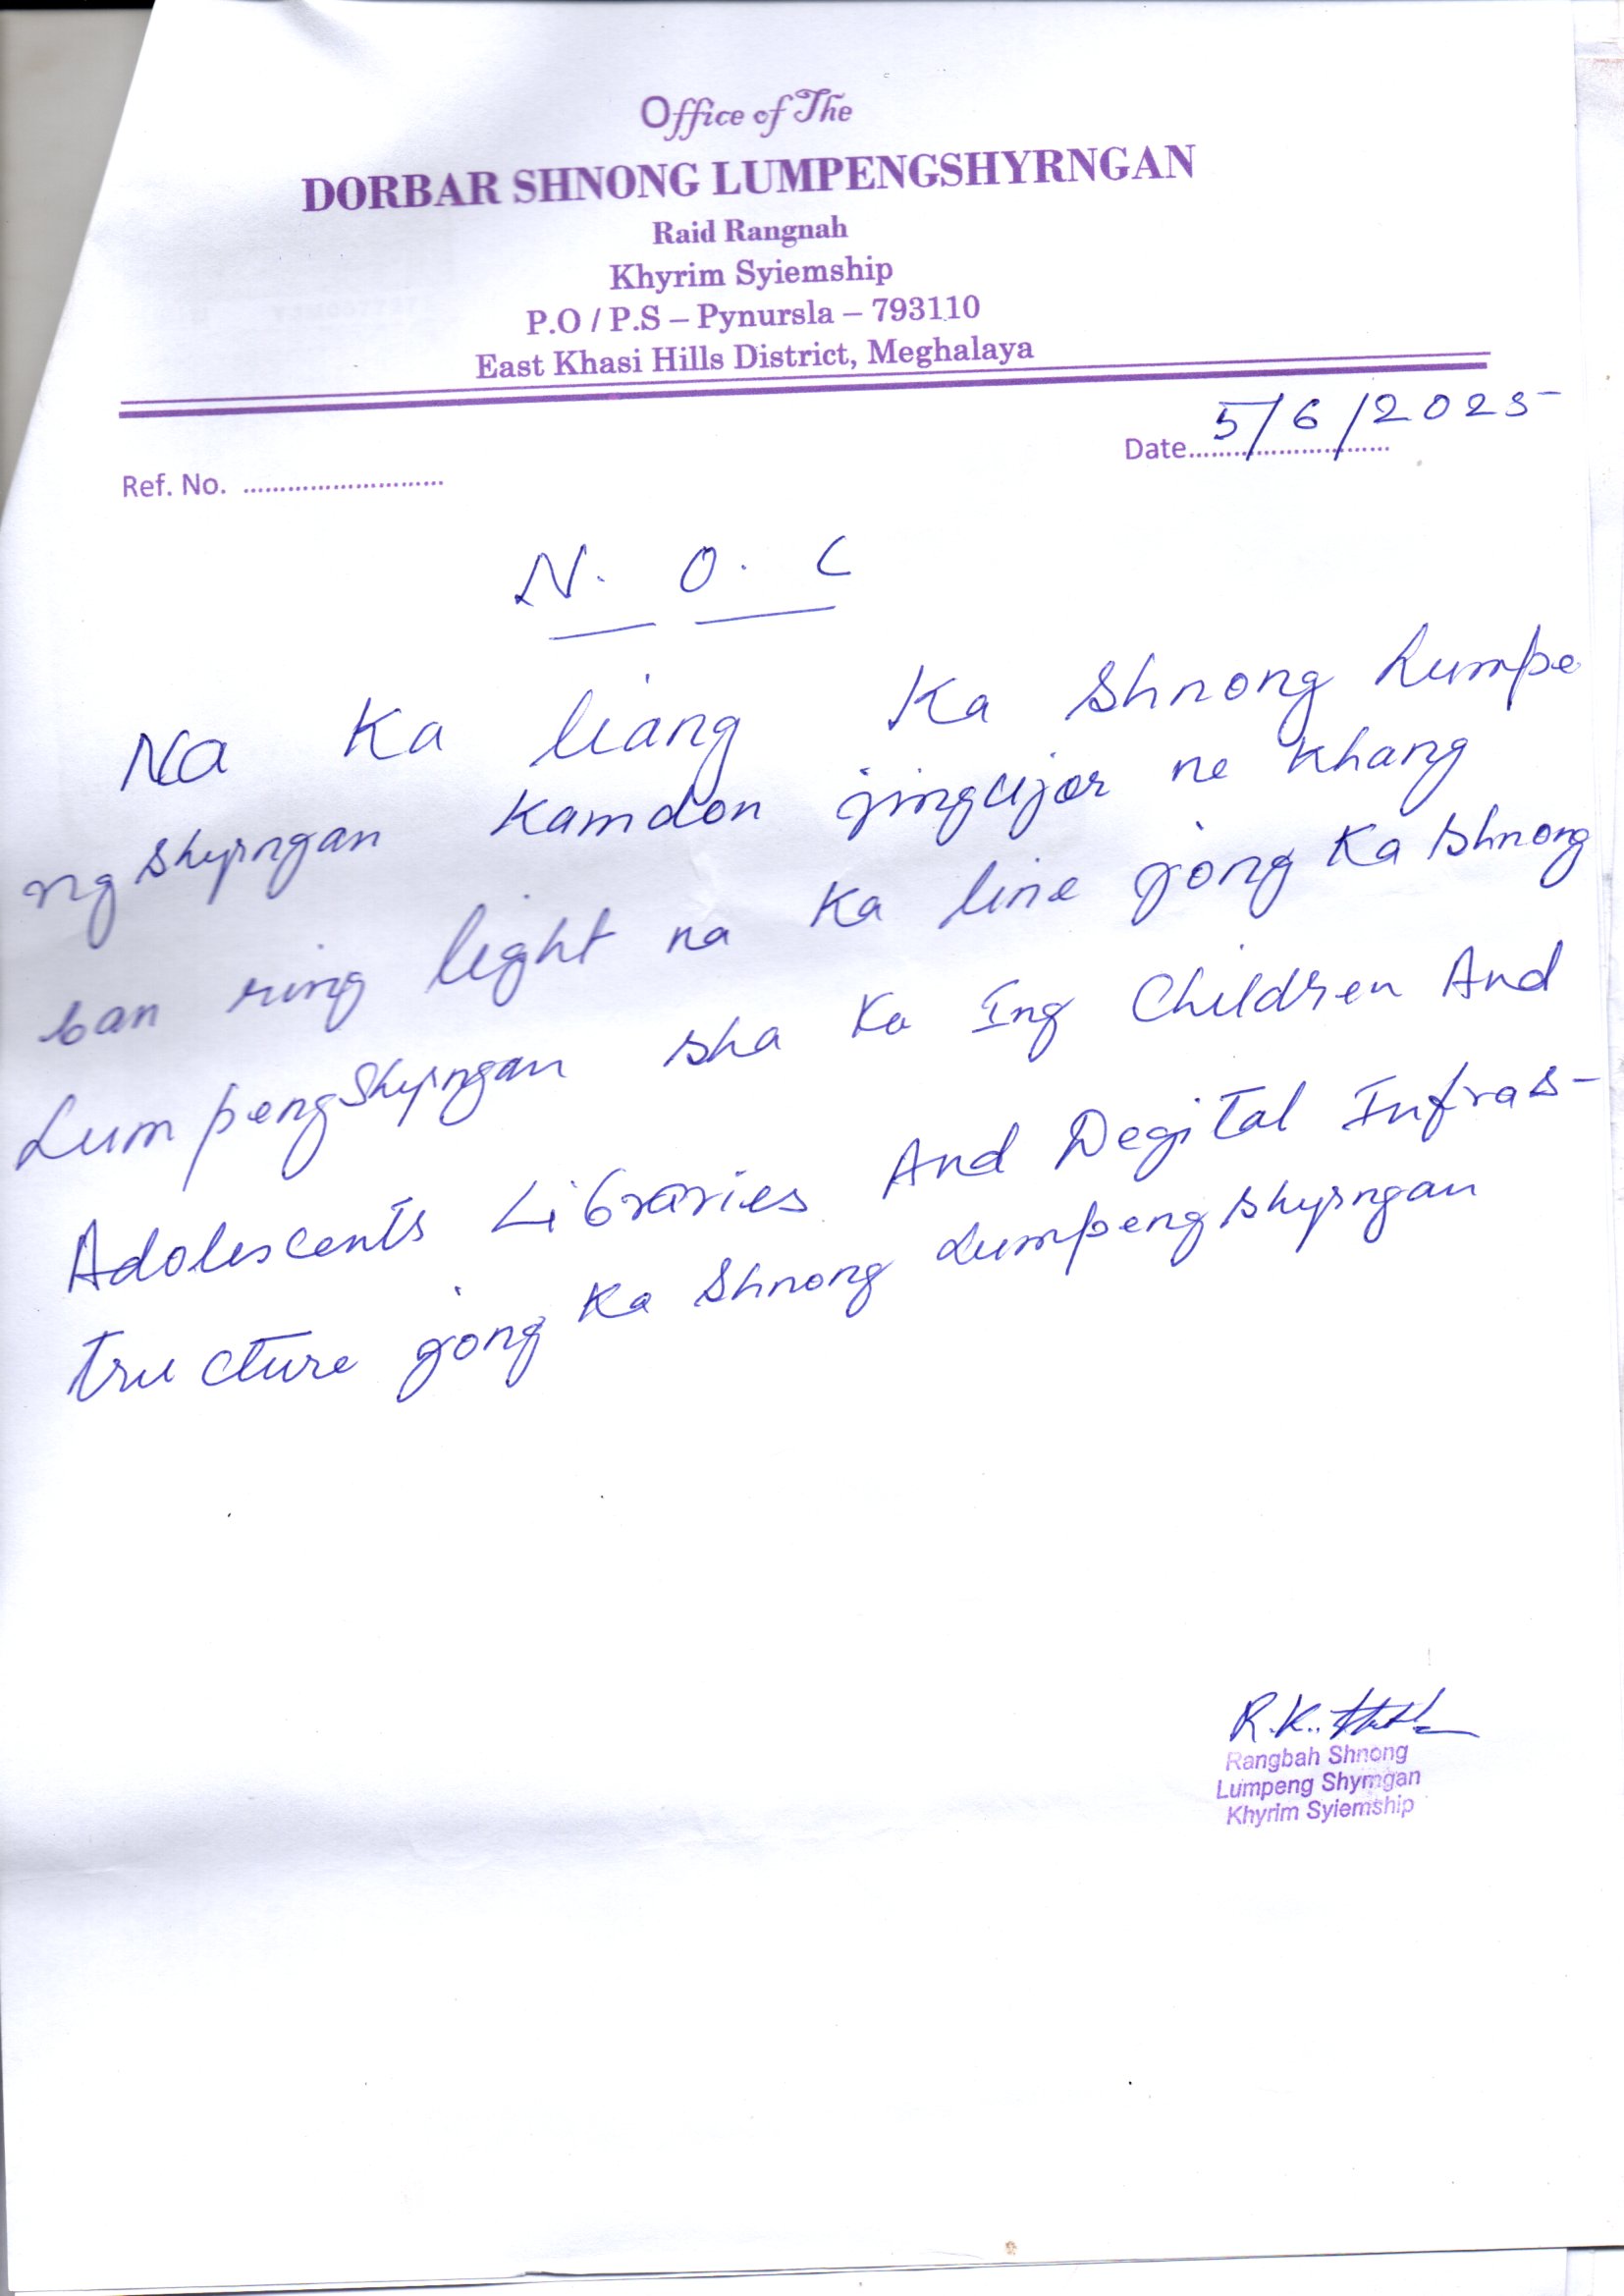 Office of The
DORBAR SHNONG LUMPENGSHYRNGAN
Raid Rangnah
Khyrim Syiemship
P.O / P.S – Pynursla – 793110
East Khasi Hills District, Meghalaya
Date.......................... 5/6/2025
Ref. No. ...........................
N. O. C
Na Ka liang Ka Shnong Lumpe
ngshyrngan Kamdon jingujor ne khang
ban ring light na Ka line jong Ka Shnong
LumpengShyrngan sha Ka Ing Children And
Adolescents Libraries And Degital Infras-
tructure jong Ka Shnong Lumpengshyrngan
R.K.
Rangbah Shnong
Lumpeng Shyrngan
Khyrim Syiemship